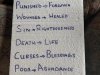 Punished → Forgiven
Wounded → Healed
Sin → Righteousness
Death → Life
Curses → Blessings
Poor → Abundance